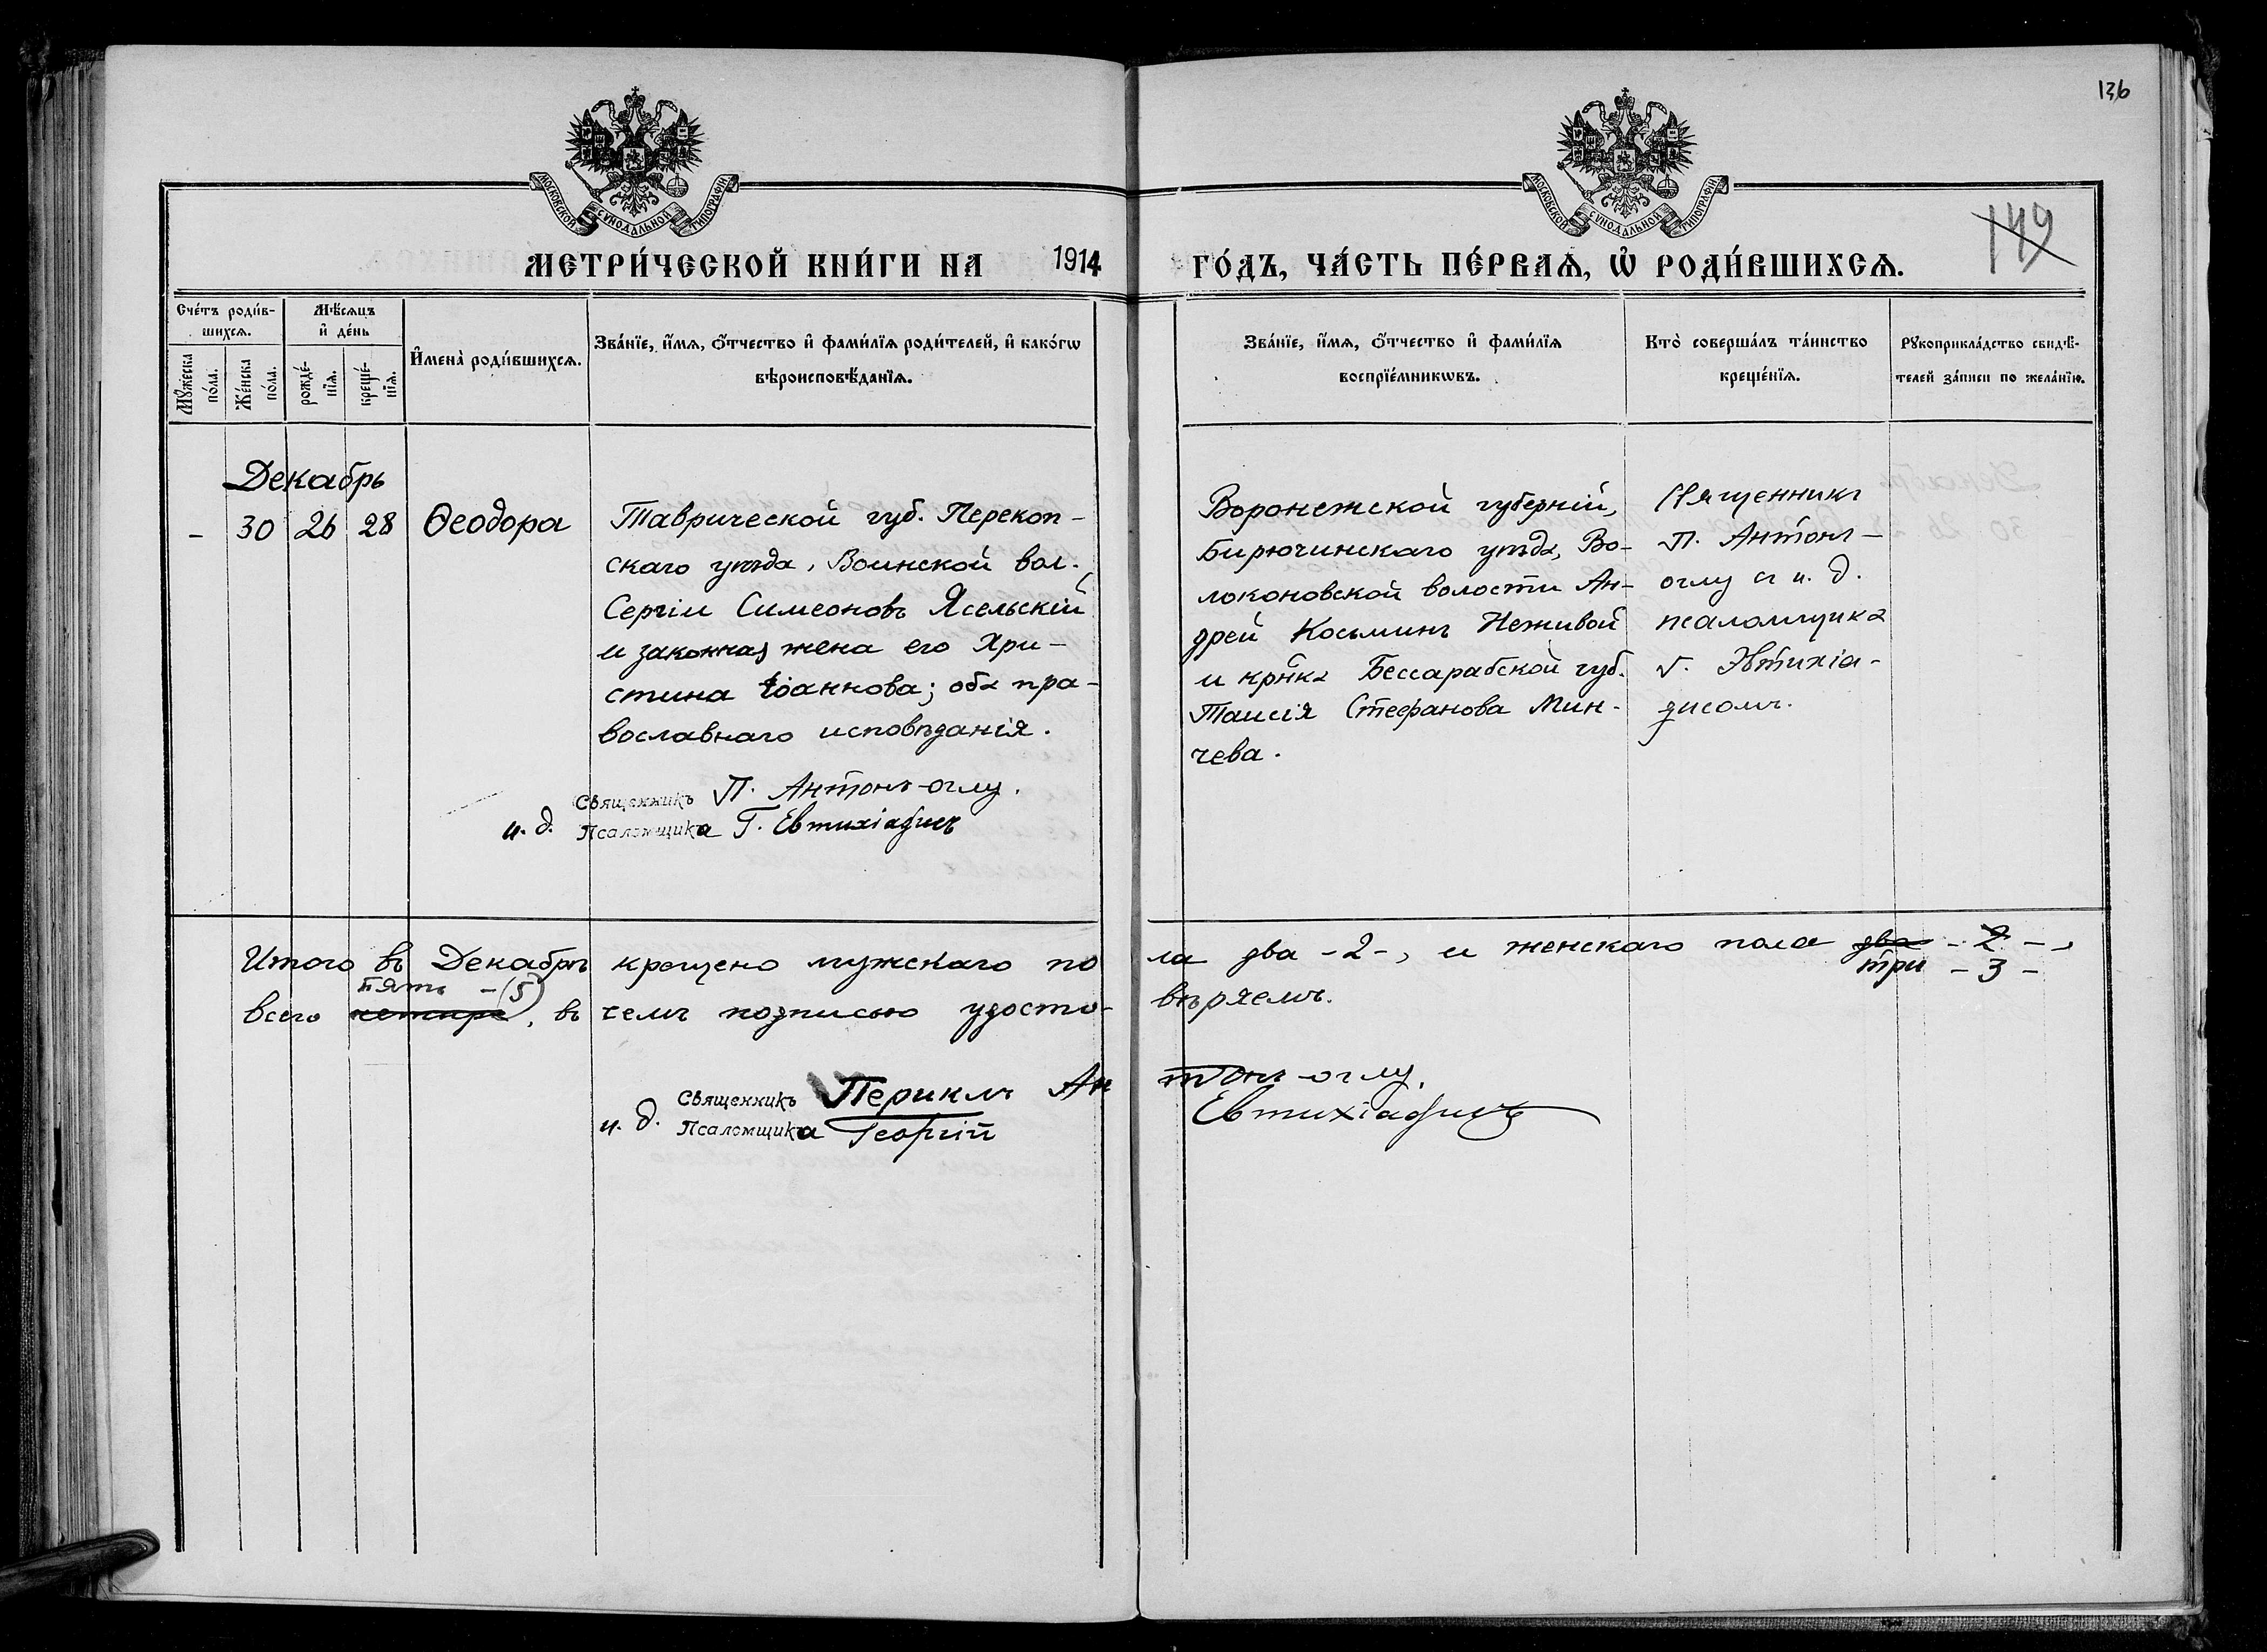 136
149
МОСКОВСКОЙ СѴНОДАЛЬНОЙ ТИПОГРАФІИ
МОСКОВСКОЙ СѴНОДАЛЬНОЙ ТИПОГРАФІИ
МЕТРИ́ЧЕСКОЙ КНИ́ГИ НА 1914 ГО́ДЪ, ЧА́СТЬ ПЕ́РВАѦ, Ѡ҆ РОДИ́ВШИХСѦ.
Сче́тъ роди́в-
шихсѧ.
Мꙋ́жеска
по́ла.
Же́нска
по́ла.
Мѣ́сѧцъ
и҆ де́нь
рожде́-
нїѧ.
креще́-
нїѧ.
И҆мена̀ роди́вшихсѧ.
Зва́нїе, и҆́мѧ, ѻ҆́тчество и҆ фами́лїѧ роди́телей, и҆ како́гѡ
вѣроисповѣ́данїѧ.
Зва́нїе, и҆́мѧ, ѻ҆́тчество и҆ фами́лїѧ
воспрїе́мникѡвъ.
Кто̀ соверша́лъ та́инство
креще́нїѧ.
Рꙋкоприкла́дство свидѣ́-
телей за́писи по жела́нїю.
Декабрь
- 30 26 28 Ѳеодора
Таврической губ. Перекоп-
скаго уѣзда, Воинской вол.
Сергій Симеоновъ Ясельскій
и законная жена его Хри-
стина Іоаннова; оба пра-
вославнаго исповѣданія.
Священникъ П. Антонъ-оглу.
и. д. Псаломщика Г. Евтихіадисъ
Воронежской губерніи,
Бирючинскаго уѣзда, Во-
локоновской волости Ан-
дрей Косьминъ Неживой
и кр-нка Бессарабской губ.
Таисія Стефанова Мин-
чева.
Священникъ
П. Антонъ-
оглу съ и. д.
псаломщика
Г. Эвтихіа-
дисомъ.
Итого въ Декабрѣ крещено мужскаго по ла два -2-, и женскаго пола два - 2 -,
три - 3 -
пять - (5)
всего четыре, въ чемъ подписью удосто- вѣряемъ.
Священникъ Периклъ Ан тонъ-оглу.
и. д. Псаломщика Георгій Евтихіадисъ